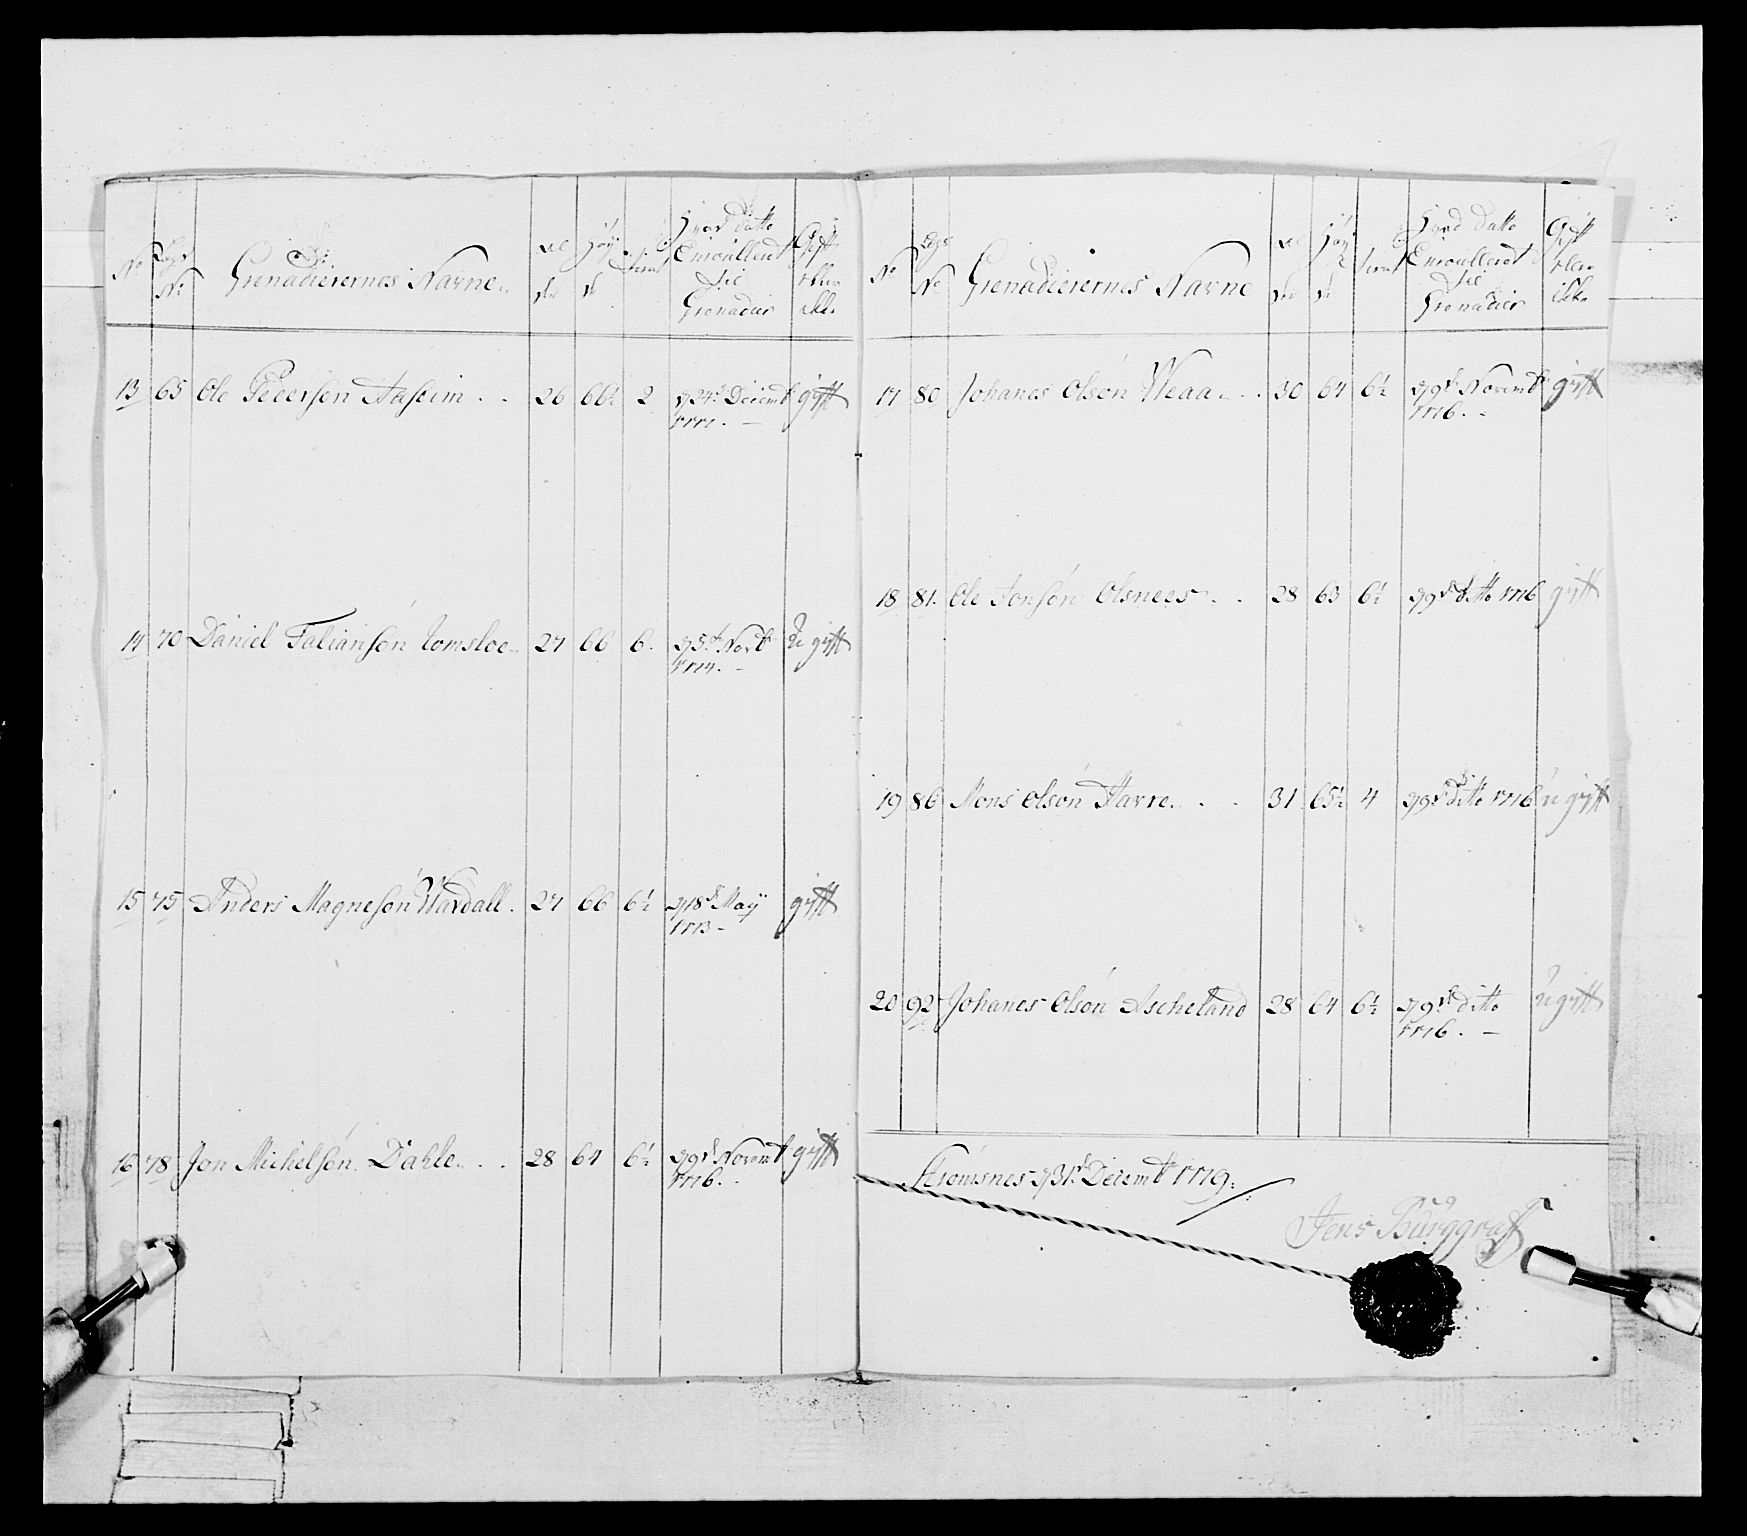 No
Lægs No
Grenadierernes Navne
Al der
Høy de
Tient
Hvad datto Enroulleret til Grenadier
Gift eller ikke
13 65 Ole Pedersen Aaseim . . 26 66½ 2 d 24d Decembr 1771. gift
14 70 Daniel Talliansen 27 66 6. d 5t Novbr 1774. Ugift
15 75 Anders Magnesen Wardall. 27 66 6½ d 18d Maÿ 1773 gift
16 78 Jon Michelsen Dahle . . 28 64 6½ d 9d Novembr 1776. gift
No
Lægs No
Grenadierernes Navne
Al der
Høy de
Tient
Hvad datto Enroulleret til Grenadier
Gift eller ikke
17 80 Johanes Olson Weaa . . 30 64 6½ d 9d Novembr 1776. gift
18 81. Ole Jonsen Olsnees . . 28 63 6½ d 9d ditto 1776 gift
19 86 Mons Olson Aarre . . 31 65½ 4 d 9d ditto 1776 ugift
20 92 Johanes Olson Ascheland 28 64 6½ d 9d ditto 1776. Ugift
d 31d Decembr 1779.
Jens Burggraf